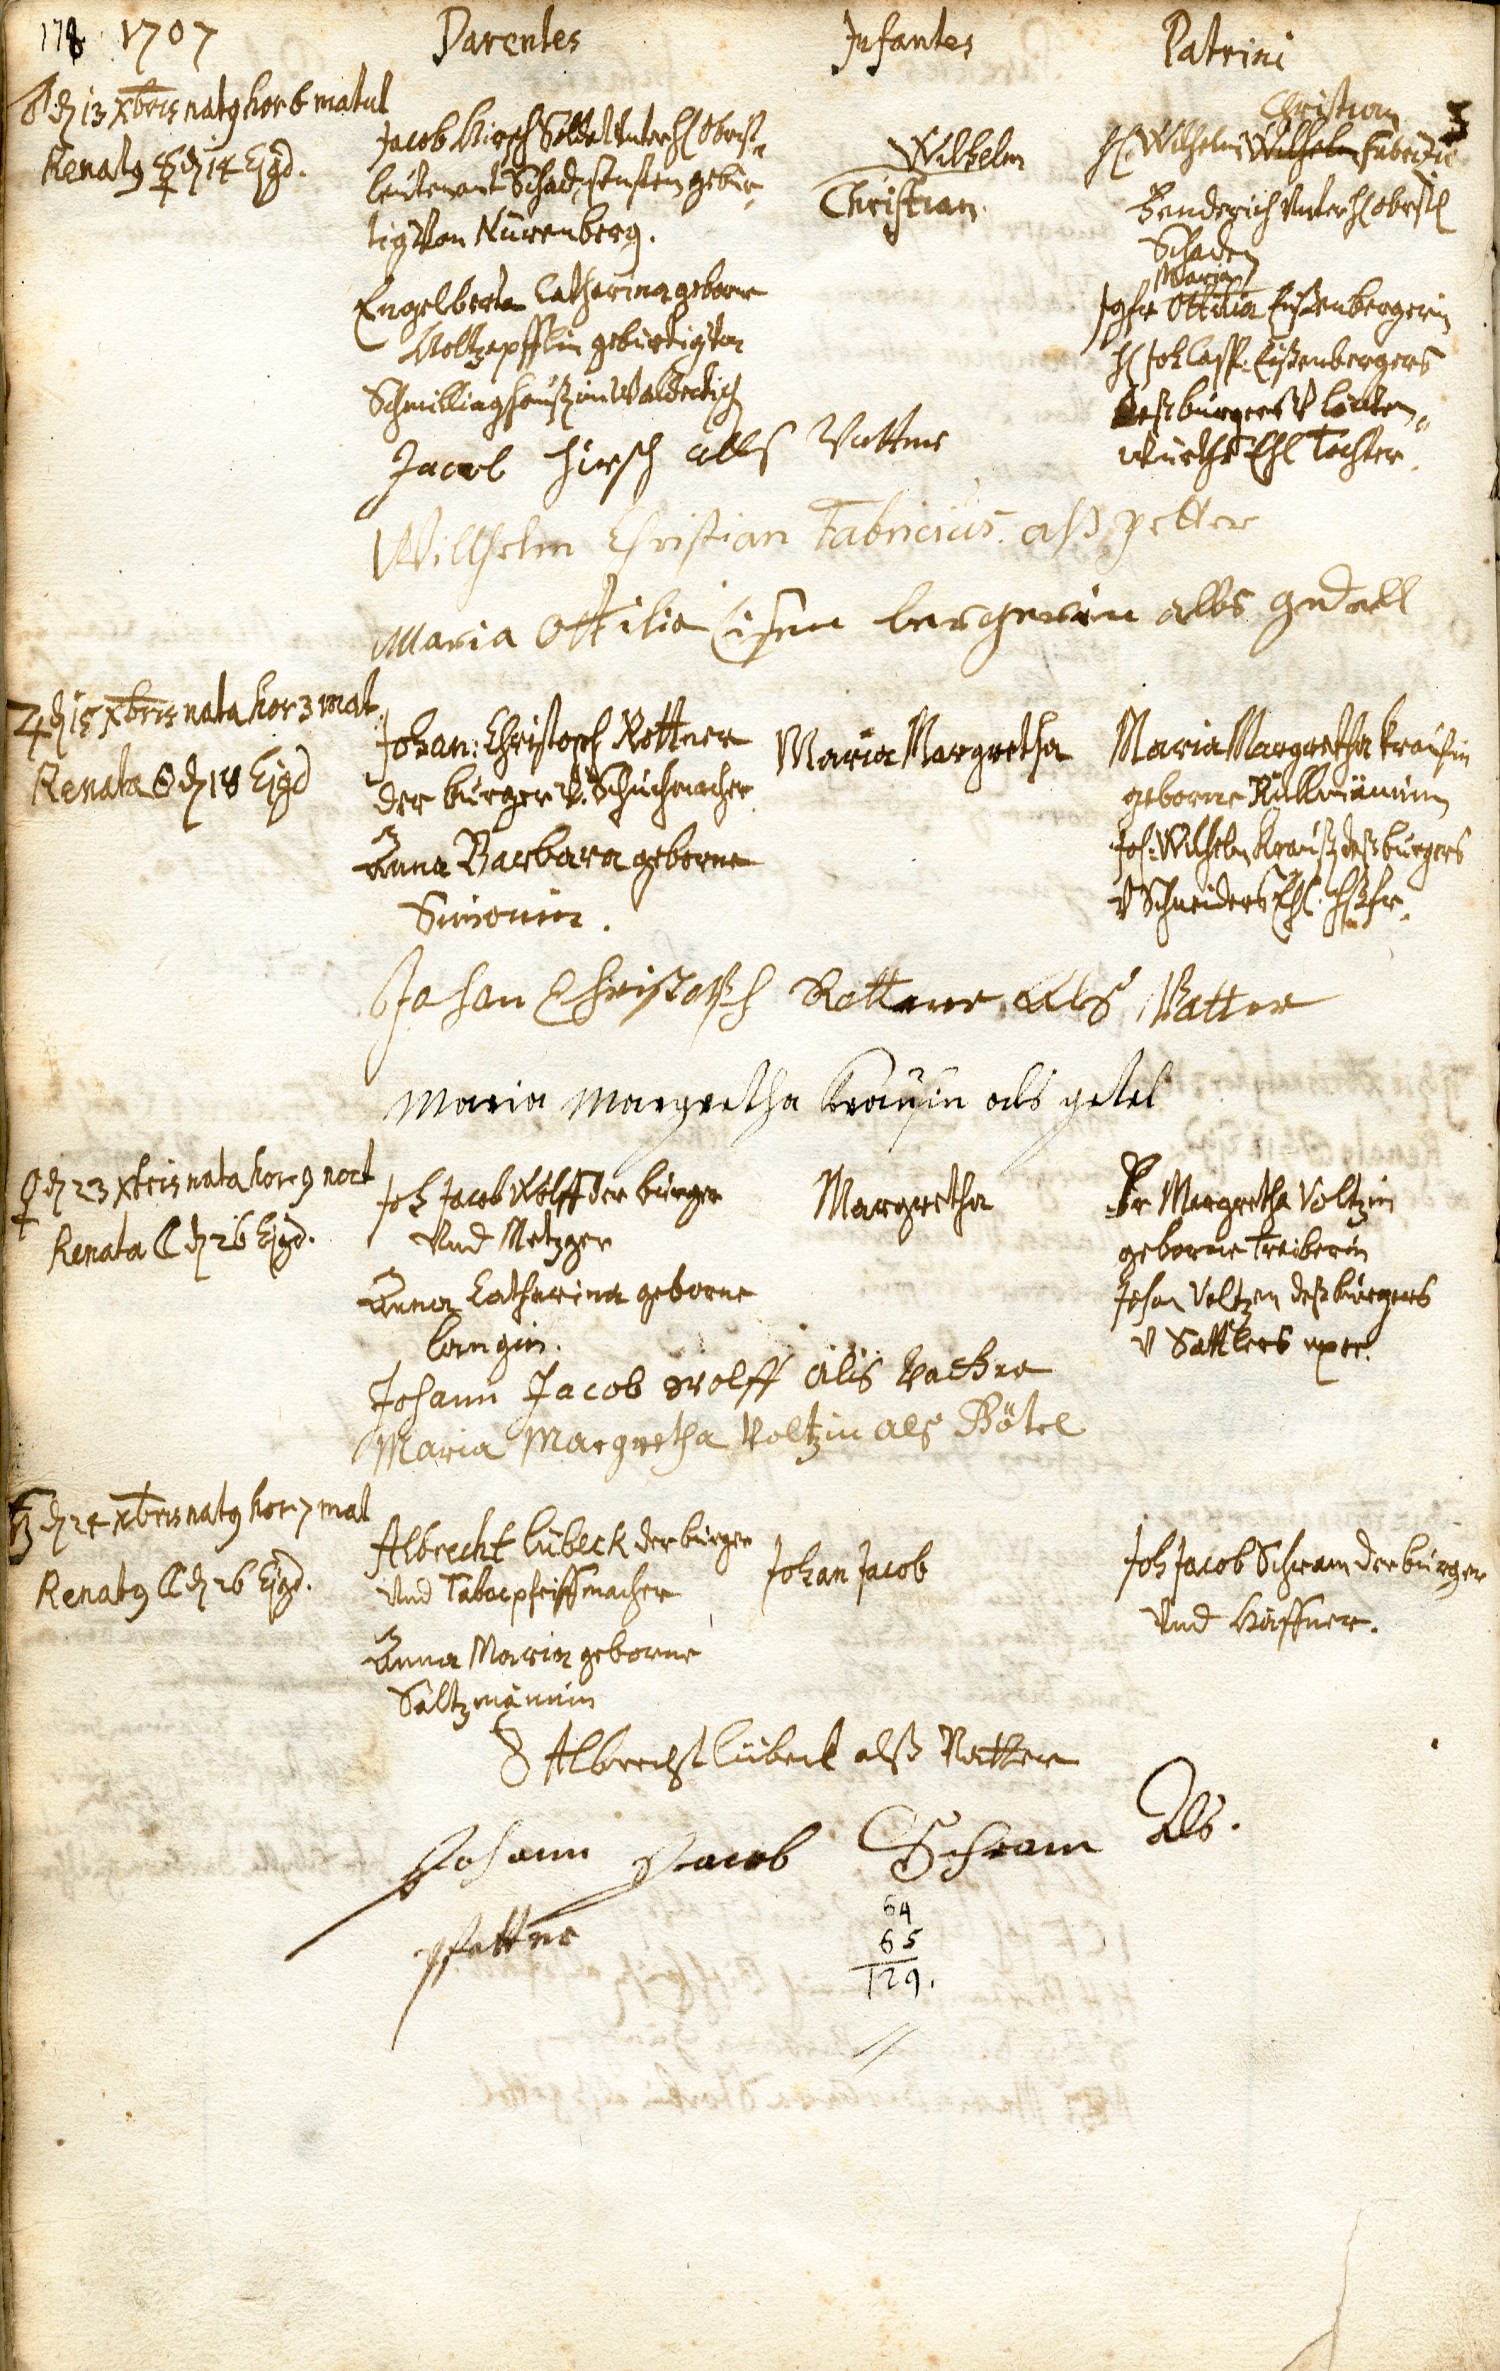 178 1707 Parentes Infantes Patrini
♂ d 13 Xbris natg hor 6 matut
Renatg ☿ d 14 Ejqd.
Jacob Hirsch Soldat unter H Obrist
leutenant Schaden gebür
tig Von Nürenberg.
Engelberta Catharina geborne
gebürtig Von
Schmillinghaußen im Waldeckisch
Wilhelm
Christian.
Christian
H. Wilhelm Wilhelm Fabritio
Fenderich Unter H Obristl
Schaden
Maria
Jgfr Ottilia Eißenbergerin
H Joh Casp: Eißenbergers
deß burgers V
würths Ehl Tochter.
Jacob Hirsch alls Vatter
Willhelm Christian Fabricius. alß petter
Maria Ottilia Eisen bergerin allss godell
♃ d 15 Xbris nata hor 3 mat.
Renata ☉ d 18 Ejqd
Johan: Christoph Rottner
der bürger V. Schuchmacher
Anna Barbara geborne
Simonin.
Maria Margretha
Maria Margretha Kraußin
geborne
Joh: Wilhelm Krauß deß bürgers
V Schneiders Ehl. Hßfr.
Johan Christoph Rottner Als Vatter
Maria Margretha Kraußin als getel
♀ d 23 Xbris nata hor 9 noct
Renata ☾ d 26 Ejqd.
Joh Jacob Wolff der bürger
Und Metzger
Anna Catharina geborne
Langin.
Margretha
Fr Margretha Voltzin
geborne Treiberin
Johan Voltzen deß bürgers
V Sattlers uxor.
Johann Jacob Wolff als Vather
Maria Margretha Voltzin als Götel
♄ d 24 Xbris natg hor 7 mat
Renatg ☾ d 26 Ejqd.
Albrecht Lübeck der bürger
Und Tabacpfeiffmacher
Anna Maria geborne
Saltzmännin
Johan Jacob
Joh Jacob Schram der bürger
Und Häffner.
Albrecht Lübeck alß Vatter
Johann Jacob Schram Als.
Pfetter
64
65
129.